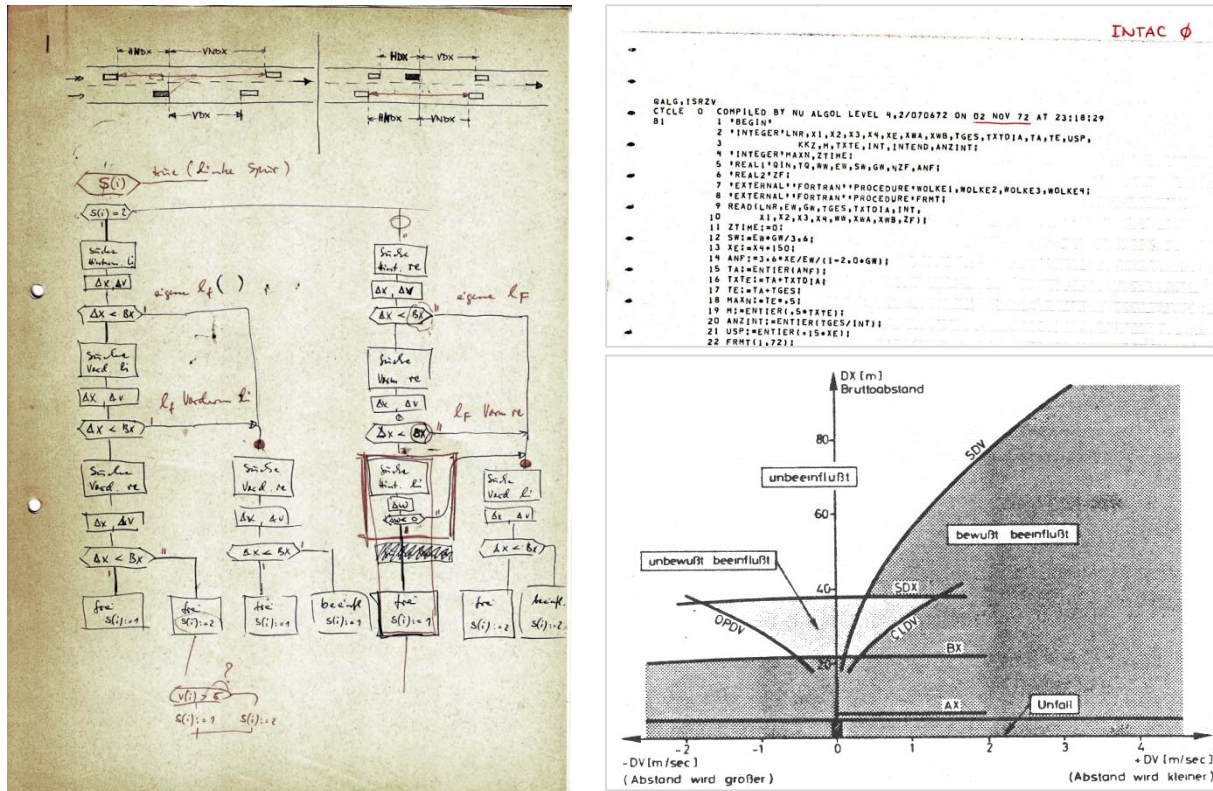 HNDX VNDX
VDX
HDX VDX
HNDX VNDX
S(i) true (linke Spur)
S(i)=2
Suche
Hinterm. li
Δx, Δv
Δx < Bx
eigene lf ( )
Suche
Vord. li
Δx, Δv
Δx < Bx
lf Vorderm li
Suche
Vord. re
Δx, Δv
Δx < Bx
frei
S(i):=1
frei
S(i):=2
Suche
Vord. re
Δx, Δv
Δx < Bx
frei
S(i):=1
beeinfl
S(i):=1
?
v(i) > S
S(i):=1 S(i):=2
Suche
Hint. re
Δx, Δv
Δx < Bx
eigene lF
Suche
Vorm re
Δx, Δv
Δx < Bx
lF Vorm re
Suche
Hint. li
Δw
Δw < 0
frei
S(i):=1
Suche
Vord. li
Δx, Δv
Δx < Bx
frei
S(i):=2
beeinfl.
S(i):=2
INTAC Ø
@ALG,ISRZV
CYCLE 0 COMPILED BY NU ALGOL LEVEL 4,2/070672 ON 02 NOV 72 AT 23:18:29
B1 1 'BEGIN'
2 'INTEGER'LNR,X1,X2,X3,X4,XE,XWA,XWB,TGES,TXTDIA,TA,TE,USP,
3 KKZ,M,TXTE,INT,INTEND,ANZINT;
4 'INTEGER'MAXN,ZTIME;
5 'REAL1'QIN,TQ,WW,EW,SW,GW,NZF,ANF;
6 'REAL2'ZF;
7 'EXTERNAL''FORTRAN''PROCEDURE'WOLKE1,WOLKE2,WOLKE3,WOLKE4;
8 'EXTERNAL''FORTRAN''PROCEDURE'FRMT;
9 READ(LNR,EW,GW,TGES,TXTDIA,INT,
10 X1,X2,X3,X4,WW,XWA,XWB,ZF);
11 ZTIME:=0;
12 SW:=EW*GW/3.6;
13 XE:=X4+150;
14 ANF:=3.6*XE/EW/(1-2.0*GW);
15 TA:=ENTIER(ANF);
16 TXTE:=TA+TXTDIA;
17 TE:=TA+TGES;
18 MAXN:=TE*.5;
19 M:=ENTIER(.5*TXTE);
20 ANZINT:=ENTIER(TGES/INT);
21 USP:=ENTIER(.15*XE);
22 FRMT(1,72);
DX [m]
Bruttoabstand
80
SDV
unbeeinflußt
60
bewußt beeinflußt
unbewußt beeinflußt
40
SDX
OPDV CLDV
BX
20
AX
Unfall
-2 -1 0 1 2 3 4
-DV [m/sec] +DV [m/sec]
(Abstand wird großer) (Abstand wird kleiner)